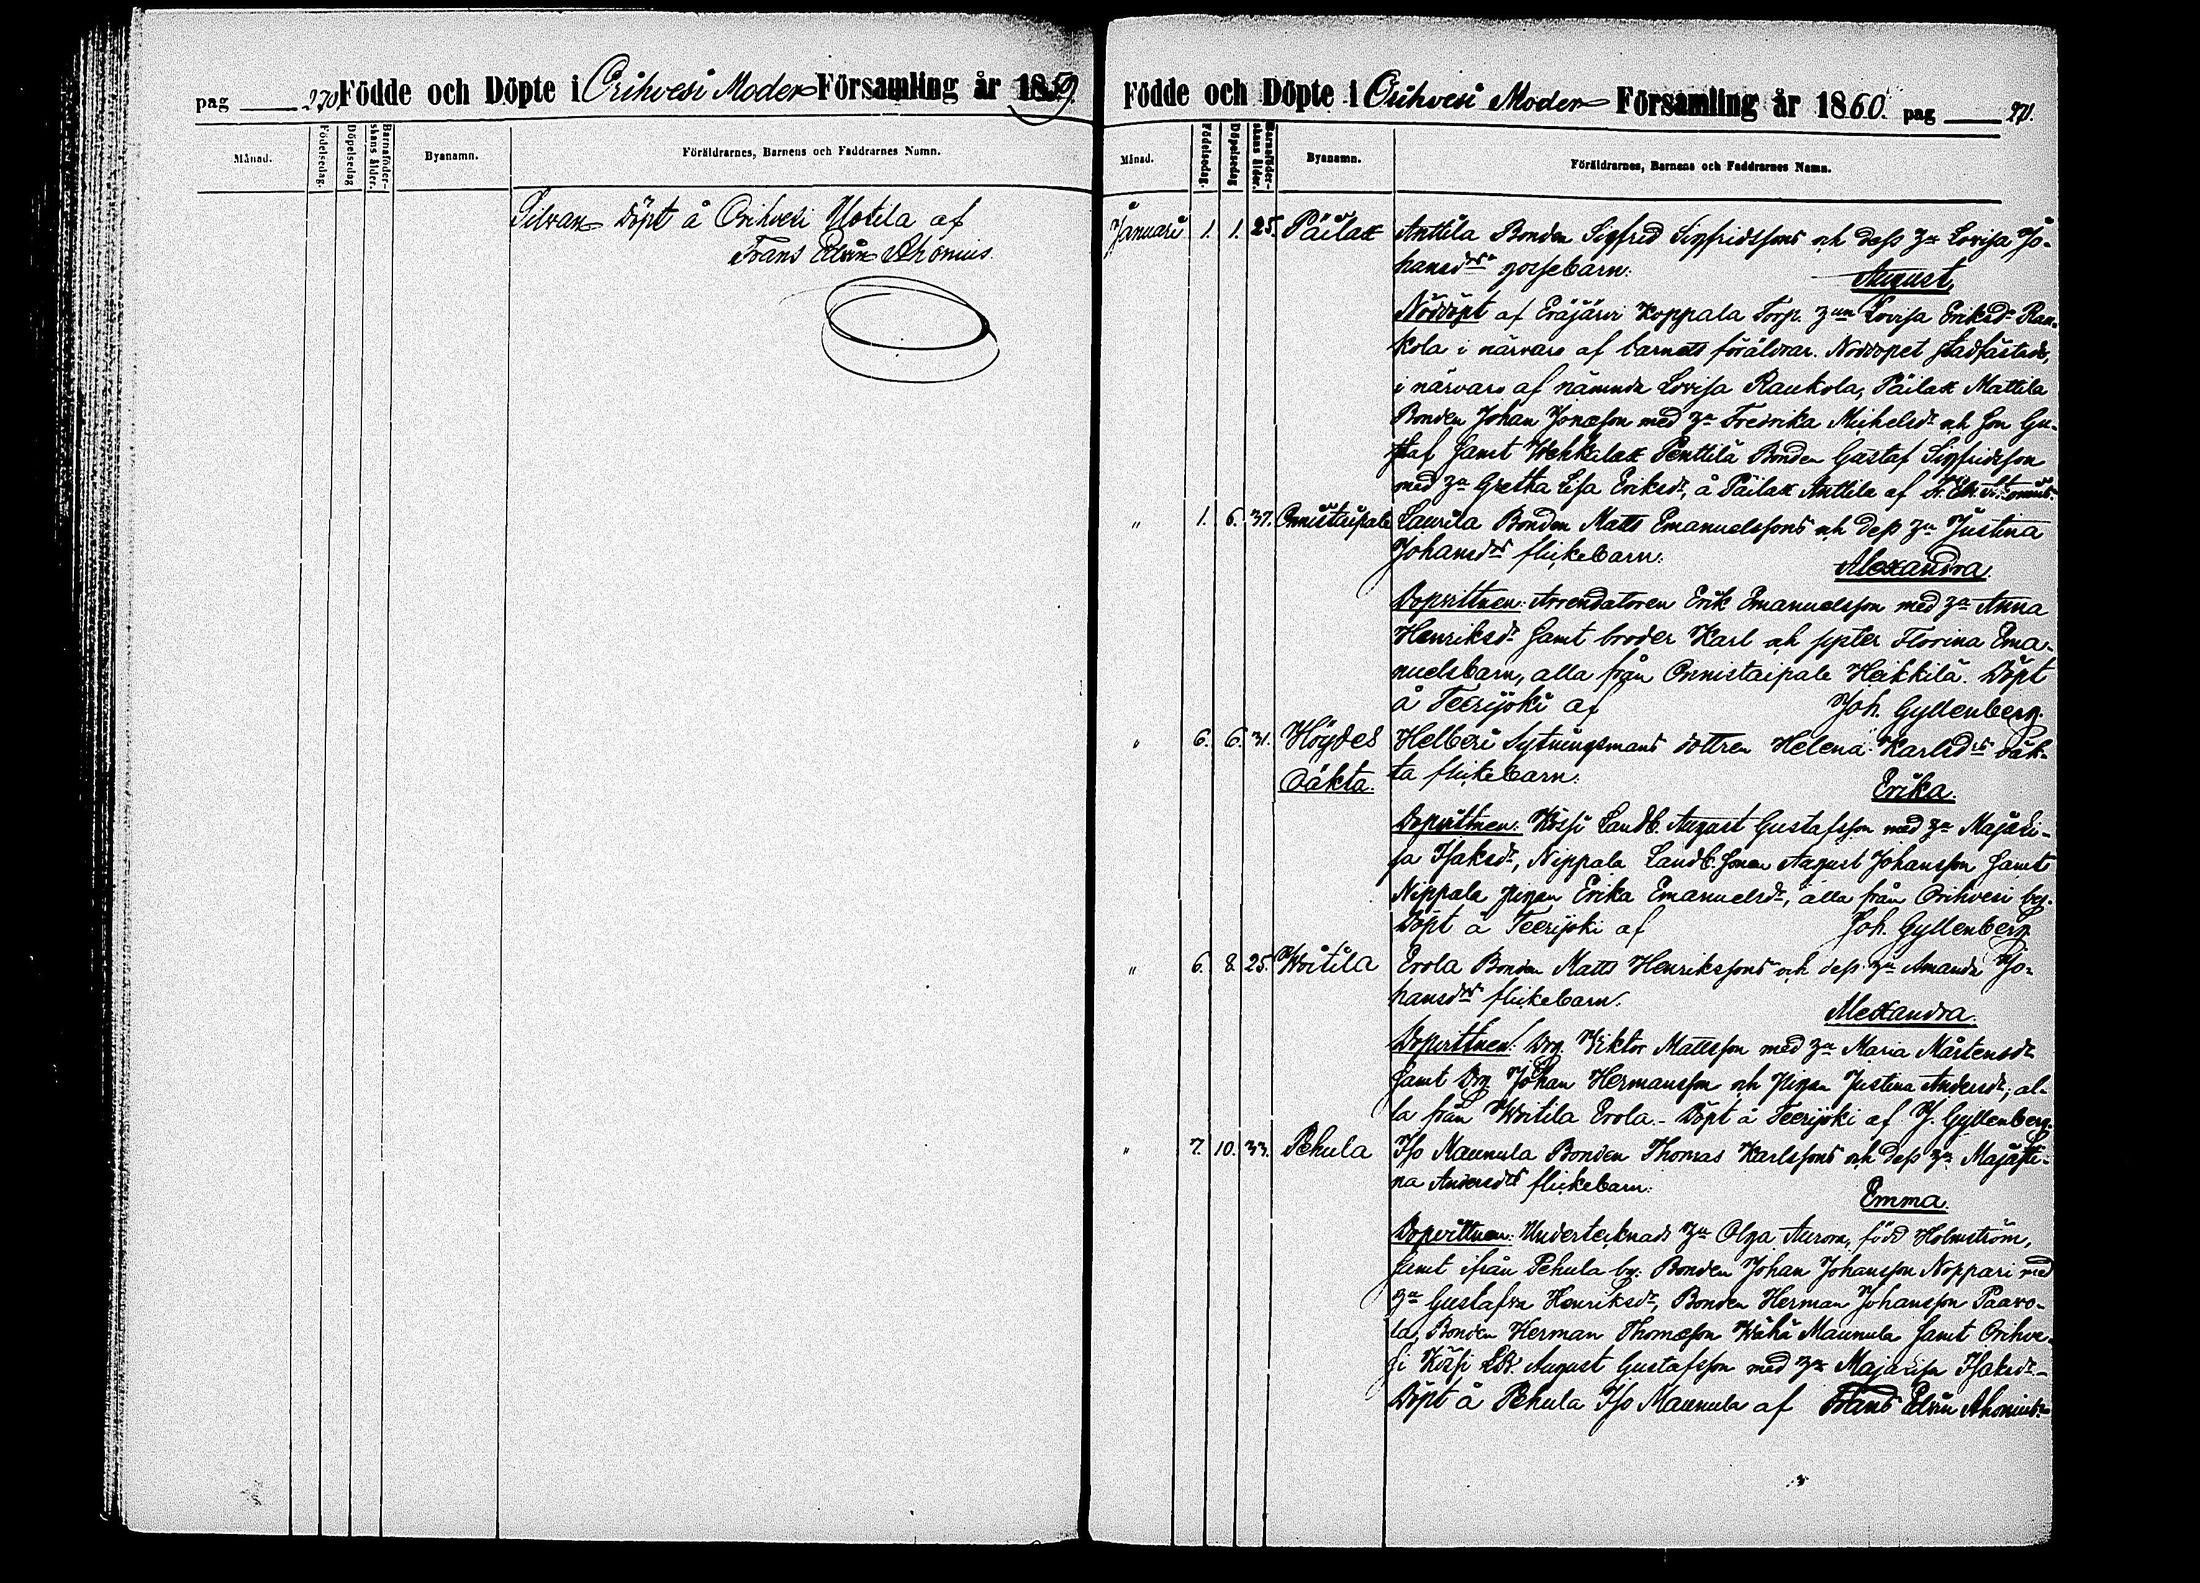 pag 270. Födde och Döpte i Orihvesi Moder Församling år 1859.
Månad. Födelsedag. Döpelsedag Barnaföderskans ålder. Byanamn. Föräldrarnes, Barnens och Faddrarnes Namn.
Silvan Döpt å Orihvesi Uotila af
Frans Edvin Ahonius.
Födde och Döpte i Orihvesi Moder Församling år 1860. pag 271.
Månad. Födelsedag. Döpelsedag Barnaföderskans ålder. Byanamn. Föräldrarnes, Barnens och Faddrarnes Namn.
Januari 1. 1. 25. Päilax Anttila Bonden Sigfrid Sigfridssons och dess hu Lovisa Jo-
hansdrs gossebarn:
August,
Nöddöpt af Eräjärvi Koppala Torp. hun Lovisa Eriksdr Rau-
kola i närvaro af barnets föräldrar. Nöddopet stadfästade,
i närvaro af nämnda Lovisa Raukola, Päilax Mattila
Bonden Johan Jonasson med hu Fredrika Michelsdr och son Gu-
staf samt Wehkalax Penttilä Bonden Gustaf Sigfridsson
med hu Gretha Lisa Eriksdr, å Päilax Anttila af Fr. Edv. Ahonius.
" 1. 6. 37. Onnistaipale Laurila Bonden Matts Emanuelssons och dess hu Justina
Johansdrs flickebarn:
Alexandra.
Dopvittnen: Arrendatoren Erik Emanuelsson med hu Anna
Henriksdr samt broder Karl och syster Florina Ema-
nuelsbarn, alla från Onnistaipale Heikkilä. Döpt
å Teerijoki af Joh. Gyllenberg.
" 6. 6. 31. Höydes Helberi Sytningsmans dottren Helena Karlsdrs oäk-
oäkta. ta flickebarn:
Erika.
Dopvittnen: Kössi Landb. August Gustafsson med hu Majali-
sa Isaksdr, Nippala Landb. sonen August Johansson samt
Nippala pigan Erika Emanuelsdr, alla från Orihvesi by.
Döpt å Teerijoki af Joh. Gyllenberg
" 6. 8. 25. Woitila Erola Bonden Matts Henrikssons och dess hu Amanda Jo-
hansdrs flickebarn:
Alexandra.
Dopvittnen: Drg Viktor Mattsson med hu Maria Mårtensdr
samt Drg Johan Hermansson och Pigan Justina Andersdr, al-
la från Woitila Erola. Döpt å Teerijoki af J. Gyllenberg.
" 7. 10. 33. Pehula Iso Maunula Bonden Thomas Karlssons och dess hu Majasti-
na Andersdrs flickebarn:
Emma.
Dopvittnen: Undertecknads hu Olga Aurora, född Holmström,
samt ifrån Pehula by: Bonden Johan Johansson Noppari med
hu Gustafva Henriksdr, Bonden Herman Johansson Paavo-
la, Bonden Herman Thomasson Wähä Maunula samt Orihve-
si Kössi LB. August Gustafsson med hu Majalisa Isaksdr.-
Döpt å Pehula Iso Maunula af Frans Edvin Ahonius.